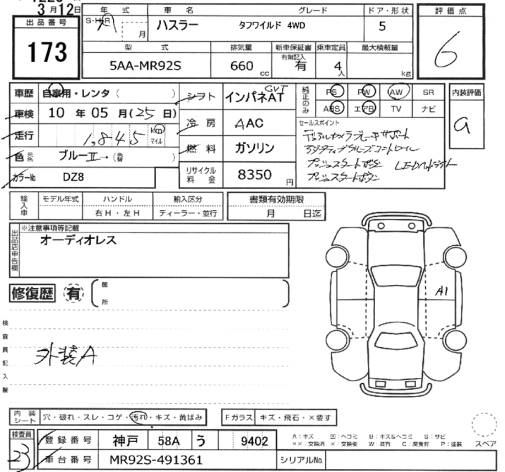 3月12日
出品番号 173
年式 車名 グレード ドア・形状 評価点
S・H・R 年 月 ハスラー タフワイルド 4WD 5 6
型式 排気量 新車保証書 有無記入 乗車定員 最大積載量
5AA-MR92S 660 cc 有 4人 kg
車歴 自家用・レンタ( ) シフト インパネAT CVT 純正のみ PS PW AW SR 内装評価
車検 10年05月(25日) ABS エアB TV ナビ a
冷房 AAC セールスポイント
走行 1,845 km マイル
デュアルセンサーブレーキサポート
色 ブルーⅡ→( ) 燃料 ガソリン
アダプティブクルーズコントロール
プッシュスタートボタン LEDヘッドライト
カラー№ DZ8 リサイクル料金 8350円
プッシュスタートボタン
輸入車 モデル年式 ハンドル 輸入区分 書類有効期限
右H・左H ディーラー・並行 月 日迄
出品店申告欄 ※注意事項等記載
オーディオレス
修復歴 有 箇所
A1
検査員記入欄
外装A
内装シート 穴・破れ・スレ・コゲ・汚れ・キズ・黄ばみ Fガラス キズ・飛石・×要す
検査員 23
登録番号 神戸 58A う 9402
車台番号 MR92S-491361 シリアル№
スペア